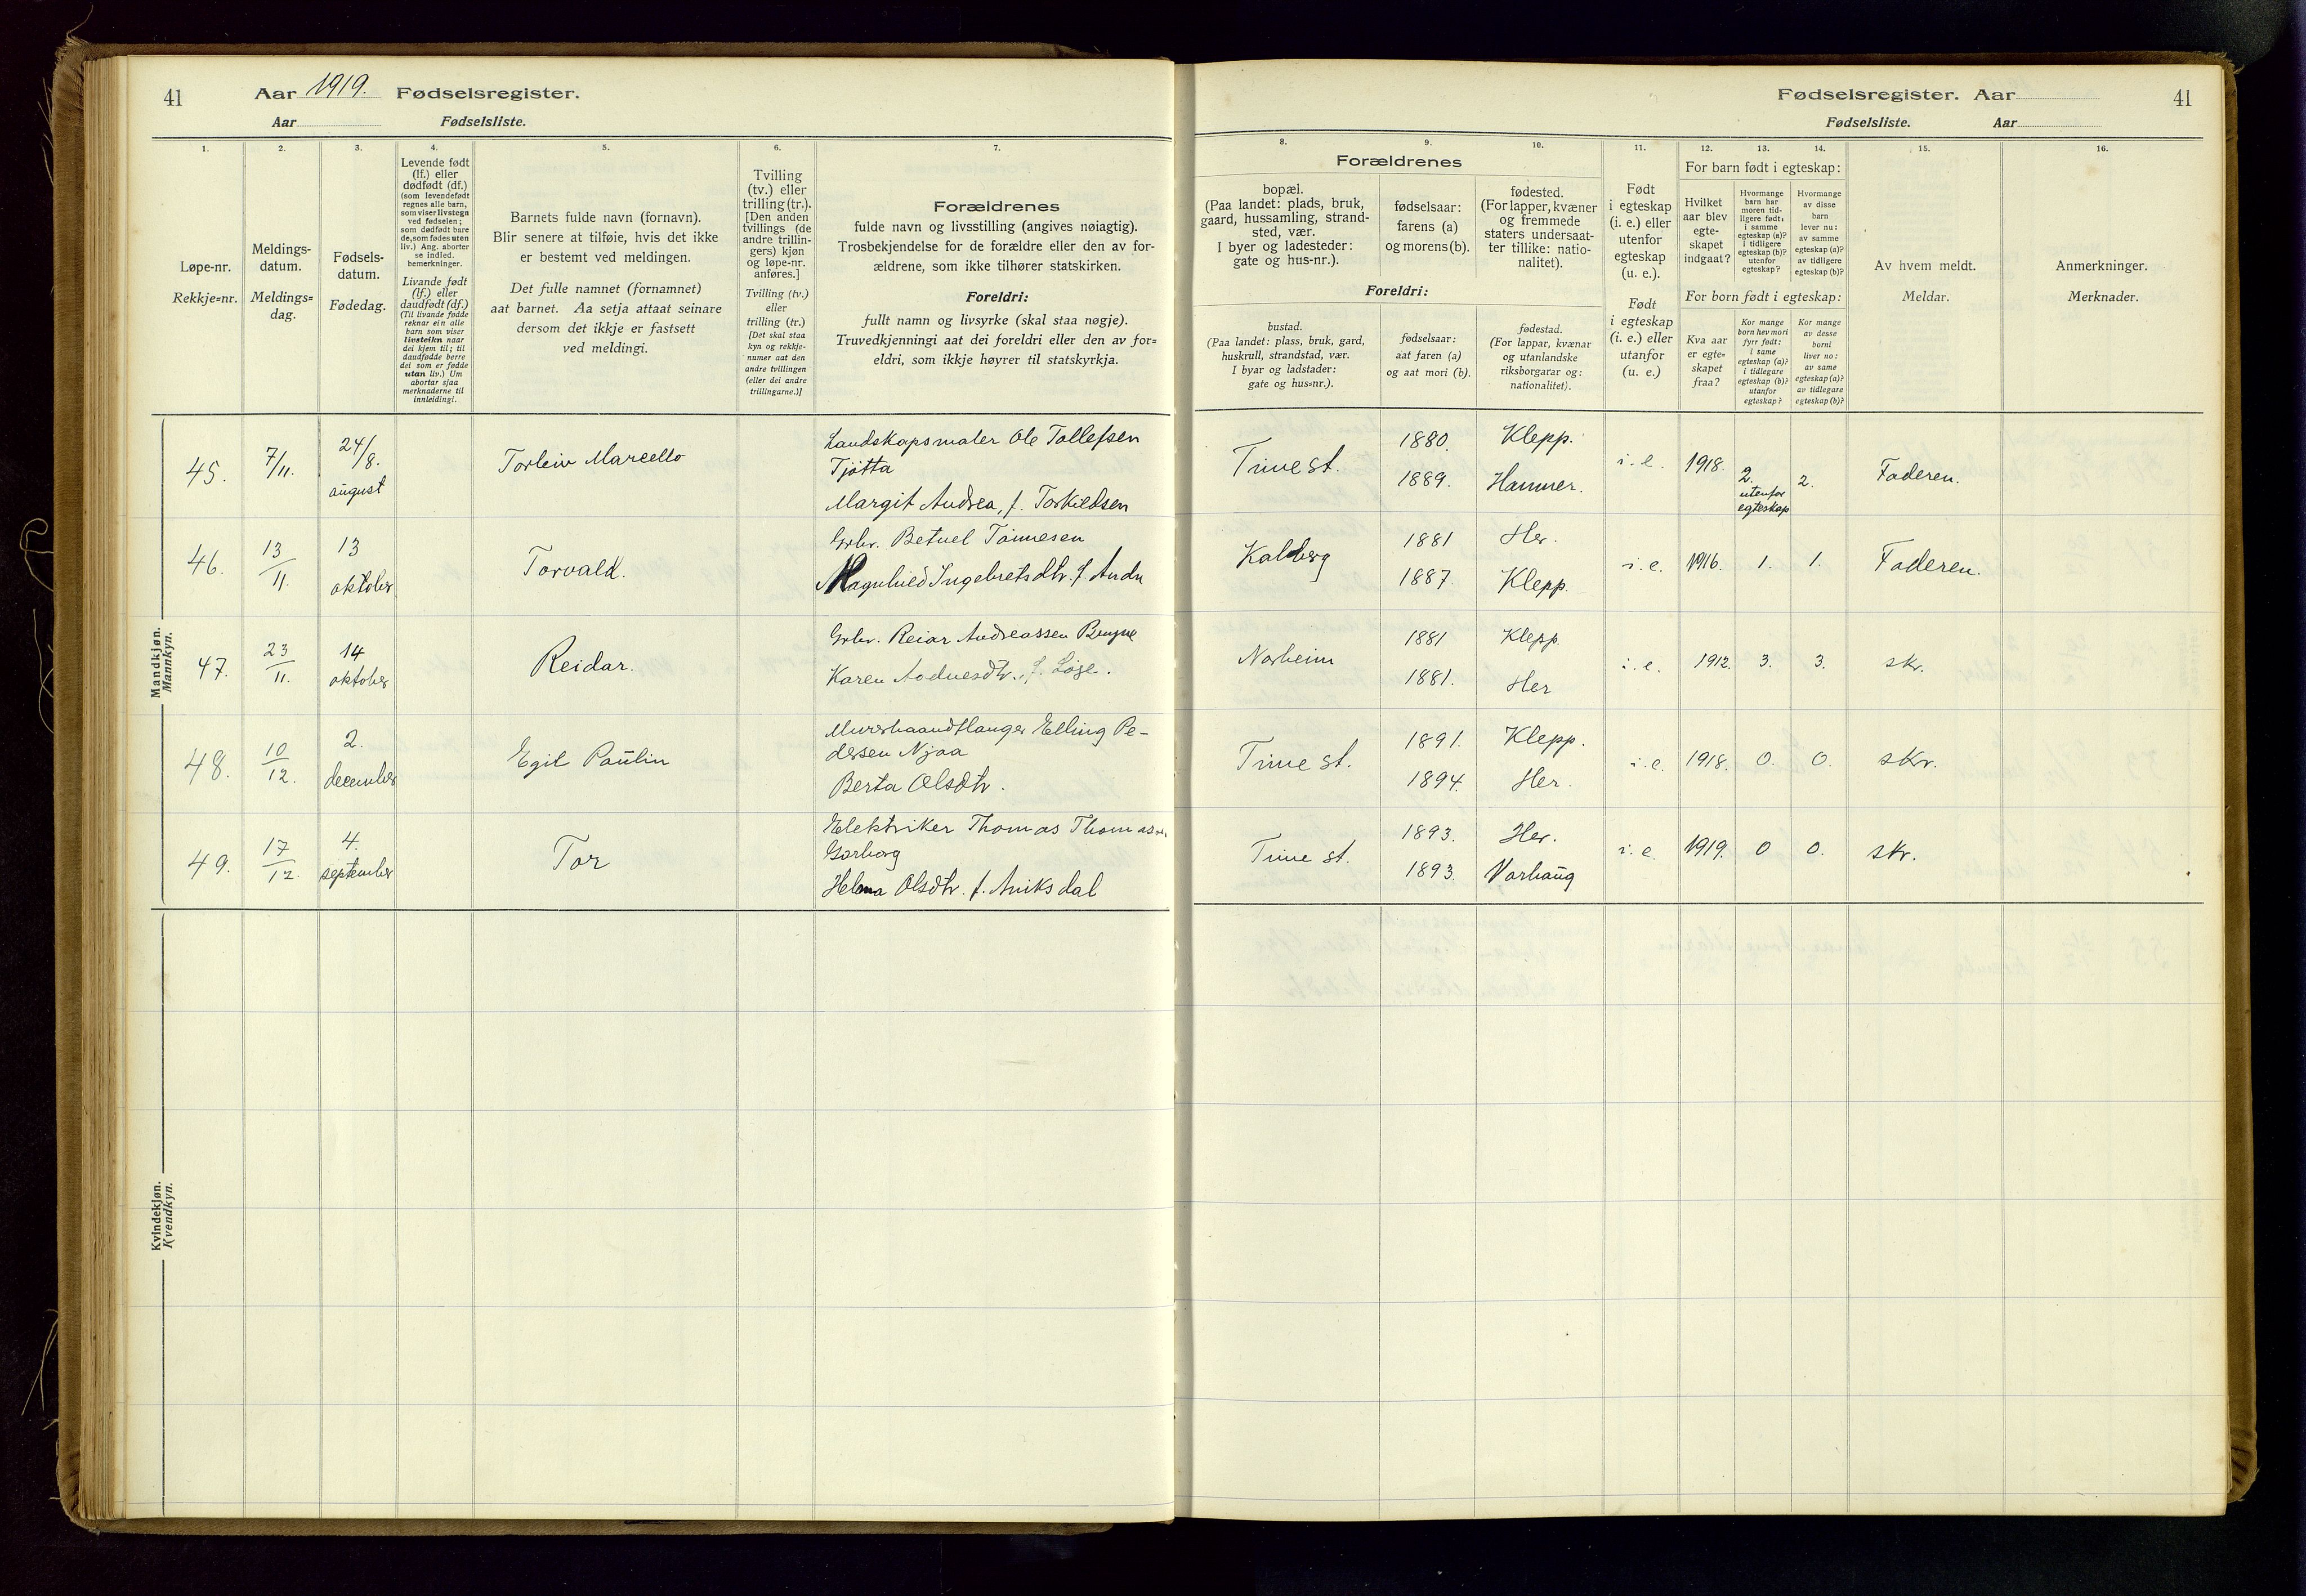 41
Aar 1919. Fødselsregister.
Aar Fødselsliste.
1.
Løpe-nr.
Rekkje=nr.
2.
Meldings-
datum.
Meldings=
dag.
3.
Fødsels-
datum.
Fødedag.
4.
Levende født
(lf.) eller
dødfødt (df.)
(som levendefødt
regnes alle barn,
som viser livstegn
ved fødselen;
som dødfødt bare
de, som fødes uten
liv.) Ang. aborter
se indled.
bemerkninger.
Livande født
(lf.) eller
daudfødt (df.)
(Til livande fødde
reknar ein alle
barn som viser
livsteikn naar
dei kjem til; til
daudfødde berre
dei som er fødde
utan liv.) Um
abortar sjaa
merknaderne til
innleidingi.
5.
Barnets fulde navn (fornavn).
Blir senere at tilføie, hvis det ikke
er bestemt ved meldingen.
Det fulle namnet (fornamnet)
aat barnet. Aa setja attaat seinare
dersom det ikkje er fastsett
ved meldingi.
6.
Tvilling
(tv.) eller
trilling (tr.).
[Den anden
tvillings (de
andre trillin-
gers) kjøn
og løpe-nr.
anføres.]
Tvilling (tv.)
eller
trilling (tr.)
[Det skal staa
kyn og rekkje-
numer aat den
andre tvillingen
(eller dei andre
trillingarne.)]
7.
Forældrenes
fulde navn og livsstilling (angives nøiagtig).
Trosbekjendelse for de forældre eller den av for-
ældrene, som ikke tilhører statskirken.
Foreldri:
fullt namn og livsyrke (skal staa nøgje).
Truvedkjenningi aat dei foreldri eller den av for=
eldri, som ikkje høyrer til statskyrkja.
Mandkjøn.
Mannkyn.
45.
7/11.
24/8.
august
Torleiv Marcello
Landskapsmaler Ole Tollefsen
Tjötta
Margit Andrea, f. Torkildsen
46.
13/11.
13
oktober
Torvald.
Grbr. Betuel Tönnesen
Magnhild Ingebretsdtr. f.
47.
23/11.
14
oktober
Reidar.
Grbr. Reiar Andreassen Bryne
Karen Aadnesdtr., f. Löge.
48.
10/12.
2.
december
Egil Paulin
Murerhaandtlanger Elling Pe-
dersen Njaa
Berta Olsdtr.
49.
17/12.
4.
september
Tor
Elektriker Thomas
Garborg
Helena Olsdtr. f. Aniksdal
Kvindekjøn.
Kvendkyn.
Fødselsregister. Aar
41
Fødselsliste. Aar
8. 9. 10.
Forældrenes
bopæl.
(Paa landet: plads, bruk,
gaard, hussamling, strand-
sted, vær.
I byer og ladesteder:
gate og hus-nr.).
fødselsaar:
farens (a)
og morens (b).
fødested.
(For lapper, kvæner
og fremmede
staters undersaat-
ter tillike: natio-
nalitet).
Foreldri:
bustad.
(Paa landet: plass, bruk, gard,
huskrull, strandstad, vær.
I byar og ladstader:
gate og hus=nr.).
fødselsaar:
aat faren (a)
og aat mori (b).
fødestad.
(For lappar, kvænar
og utanlandske
riksborgarar og:
nationalitet).
11.
Født
i egteskap
(i. e.) eller
utenfor
egteskap
(u. e.).
Født
i egteskap
(i. e.) eller
utanfor
(u. e.)
12. 13. 14.
For barn født i egteskap:
Hvilket
aar blev
egte-
skapet
indgaat?
Hvormange
barn har
moren tid-
ligere født:
i samme
egteskap (a)?
i tidligere
egteskap (b)?
utenfor
egteskap?
Hvormange
av disse
barn
lever nu:
av samme
egteskap (a)?
av tidligere
egteskap (b)?
For born født i egteskap:
Kva aar
er egte=
skapet
fraa?
Kor mange
born hev mori
fyrr født:
i same
egteskap (a)?
i tidlegare
egteskap (b)?
utanfor
egteskap?
Kor mange
av desse
borni
liver no:
av same
egteskap (a)?
av tidlegare
egteskap (b)?
15.
Av hvem meldt.
Meldar.
16.
Anmerkninger.
Merknader.
Time st.
1880. Klepp.
1889. Hammer.
i. e. 1918. 2.
utenfor
egteskap
2. Faderen.
Kalberg
1881 Her.
1887. Klepp.
i. e. 1916. 1. 1. Faderen.
Norheim
1881 Klepp.
1881. Her
i. e. 1912. 3. 3. skr.
Time st.
1891. Klepp.
1894. Her.
i. e. 1918. 0. 0. skr.
Time st.
1893. Her.
1893. Varhaug
i. e. 1919. 0 0. skr.